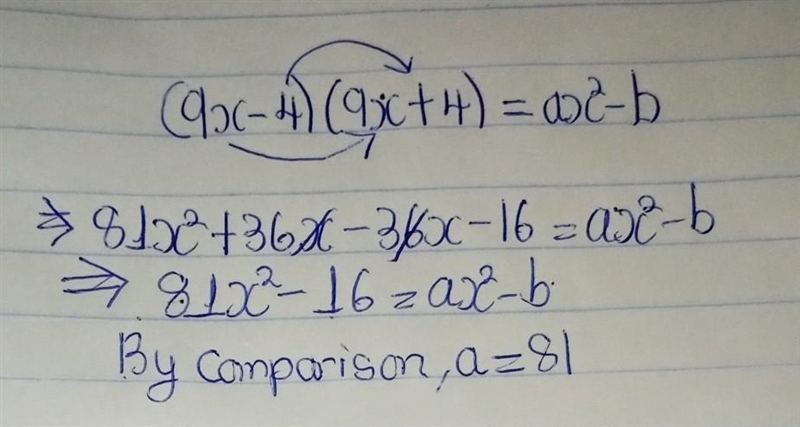 (9x-4)(9x+4)=ax²-b
⇒ 81x²+36x-36x-16=ax²-b
⇒ 81x²-16=ax²-b
By comparison, a=81